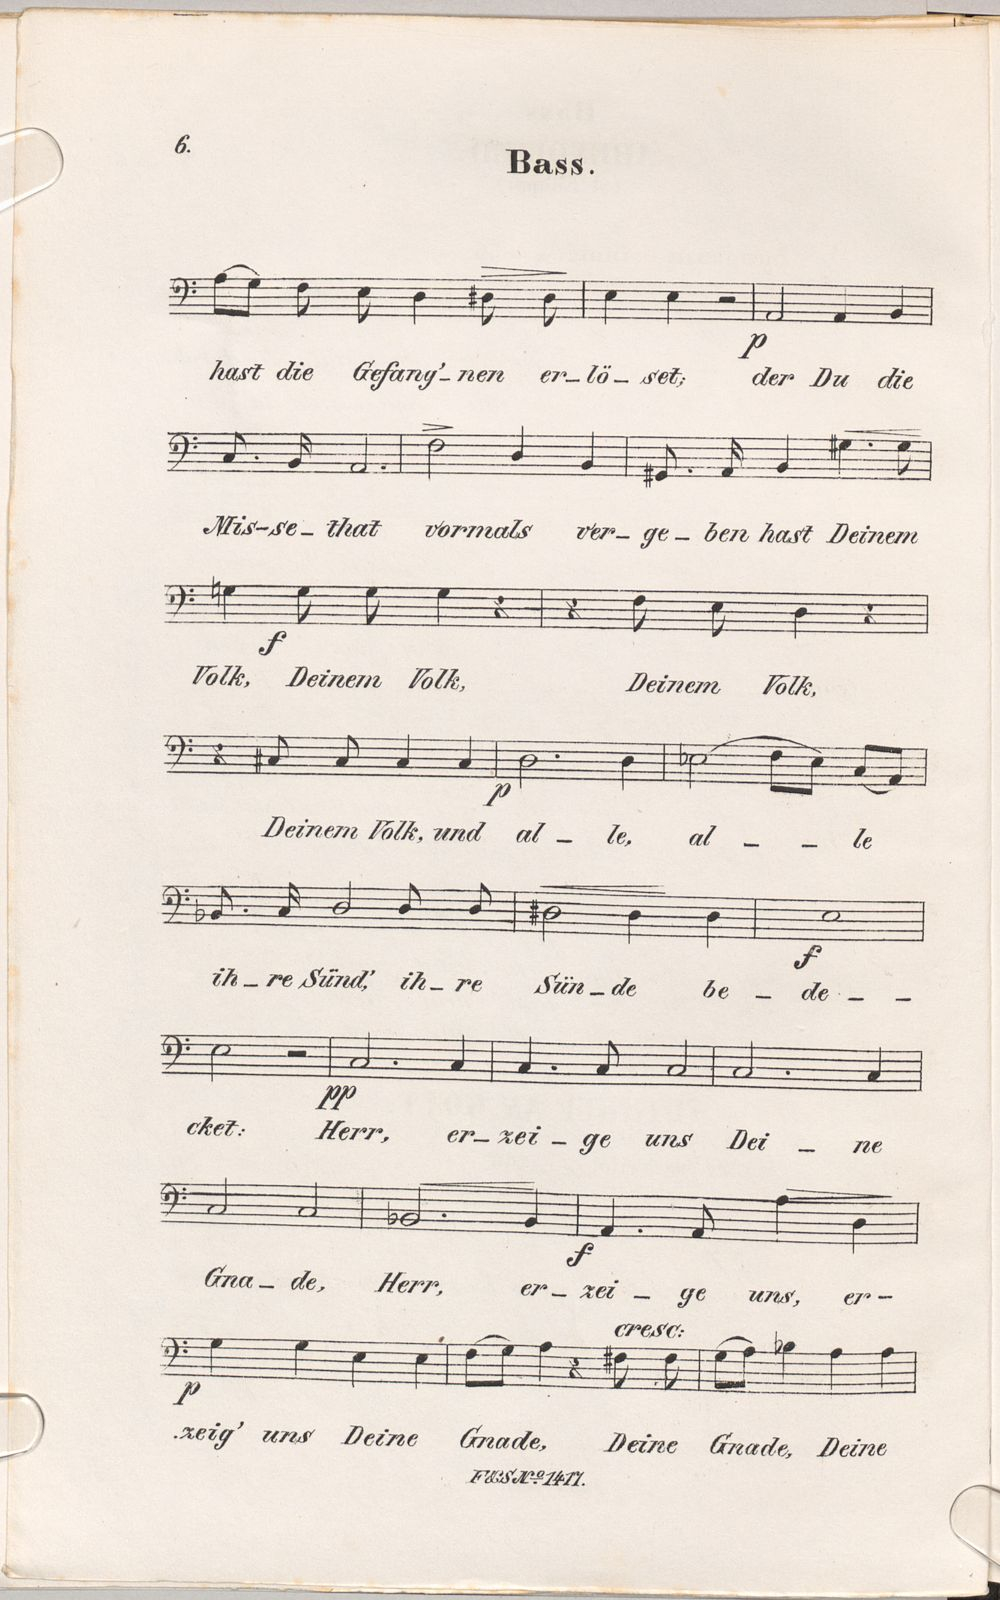 6.
Bass.
p
hast die Gefang'_ nen er_ lö_ set; der Du die
Mis-se_ that vormals ver_ ge_ ben hast Deinem
f
Volk, Deinem Volk, Deinem Volk,
p
Deinem Volk, und al _ le, al _ _ le
f
ih_ re Sünd', ih_ re Sün_de be _ de _ _
pp
cket: Herr, er_ zei _ ge uns Dei _ ne
f
Gna_ de, Herr, er_ zei _ ge uns, er_
cresc:
p
zeig' uns Deine Gnade, Deine Gnade, Deine
F&S No 1417.